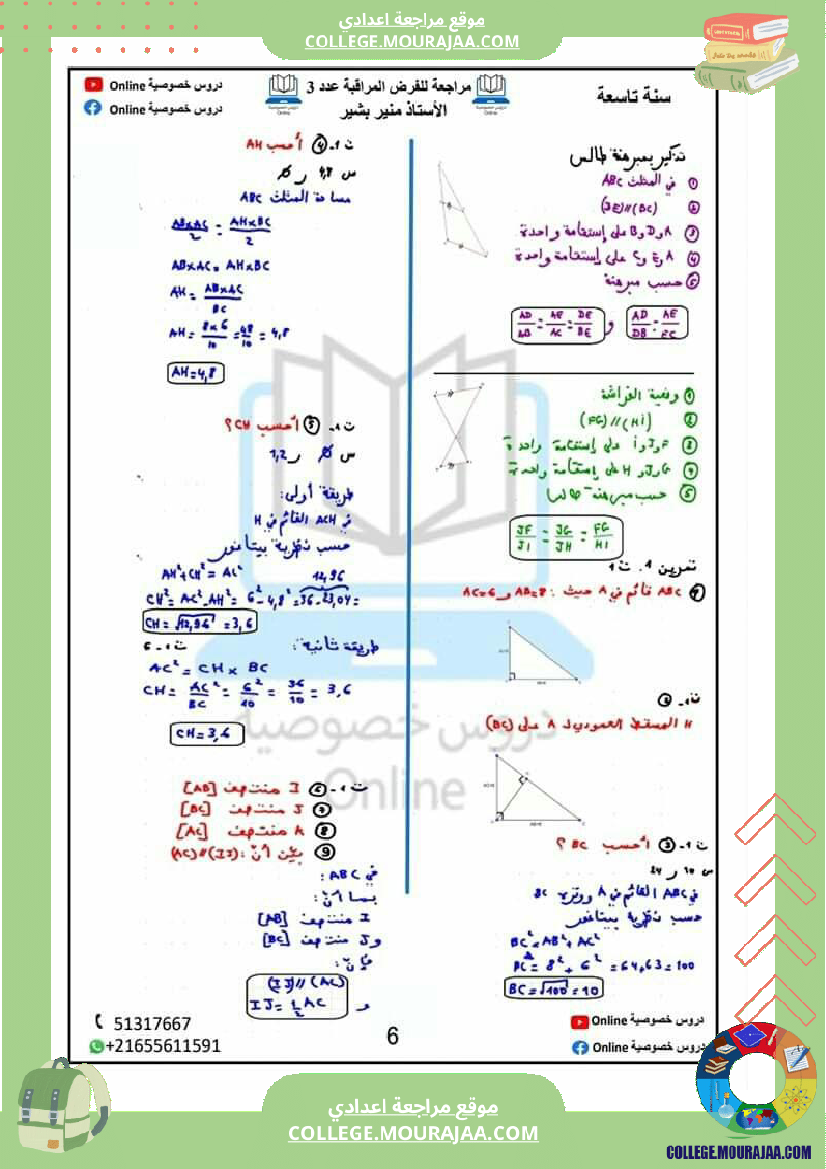 موقع مراجعة اعدادي
COLLEGE.MOURAJAA.COM
سنة تاسعة
مراجعة للفرض المراقبة عدد 3
الأستاذ منير بشير
دروس خصوصية Online
دروس خصوصية Online
تذكير بمبرهنة طالس
① في المثلث ABC
② (BC)//(DE)
③ A و D و B على إستقامة واحدة
④ A و E و C على إستقامة واحدة
⑤ حسب مبرهنة
AD/AB = AE/AC = DE/BC و AD/DB = AE/EC
① وضعية الفراشة
② (FG)//(HI)
③ F و J و I على إستقامة واحدة
④ G و J و H على إستقامة واحدة
⑤ حسب مبرهنة طالس
JF/JI = JG/JH = FG/HI
تمرين 1
① ABC قائم في A حيث: AB=8 و AC=6
H المسقط العمودي لـ A على (BC)
ت 1- ③ أحسب BC ؟
في ABC القائم في A ووتره BC
حسب نظرية بيتاغور
BC² = AB² + AC²
BC² = 8² + 6² = 64+63 = 100
BC = √100 = 10
ت 1- ④ أحسب AH
مساحة المثلث ABC
AB×AC/2 = AH×BC/2
AB×AC = AH×BC
AH = AB×AC/BC
AH = 8×6/10 = 48/10 = 4,8
AH = 4,8
ت 1- ⑤ أحسب CH ؟
طريقة أولى:
في ACH القائم في H
حسب نظرية بيتاغور
AH² + CH² = AC²
12,96
CH² = AC² - AH² = 6² - 4,8² = 36 - 23,04 =
CH = √12,96 = 3,6
طريقة ثانية:
AC² = CH × BC
CH = AC²/BC = 6²/10 = 36/10 = 3,6
CH = 3,6
ت 1- ⑥ I منتصف [AB]
⑦ J منتصف [BC]
⑧ K منتصف [AC]
⑨ بيّن أنّ: (IJ)//(AC)
في ABC:
بما أنّ:
I منتصف [AB]
و J منتصف [BC]
فإنّ:
(IJ)//(AC)
و IJ = 1/2 AC
دروس خصوصية
Online
51317667
+21655611591
6
دروس خصوصية Online
دروس خصوصية Online
موقع مراجعة اعدادي
COLLEGE.MOURAJAA.COM
COLLEGE.MOURAJAA.COM